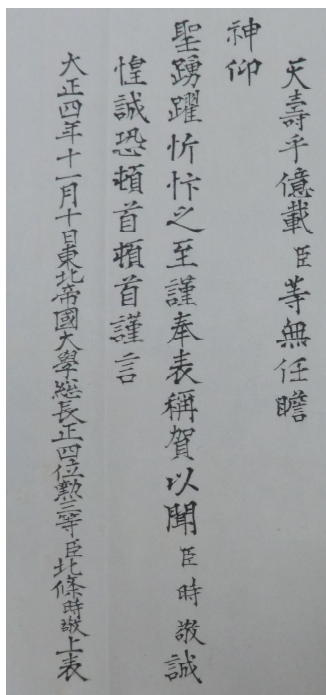 天壽乎億載臣等無任瞻
神仰
聖踴躍忻忭之至謹奉表稱賀以聞臣時敬誠
惶誠恐頓首頓首謹言
大正四年十一月十日東北帝國大學総長正四位勲二等臣北條時敬上表